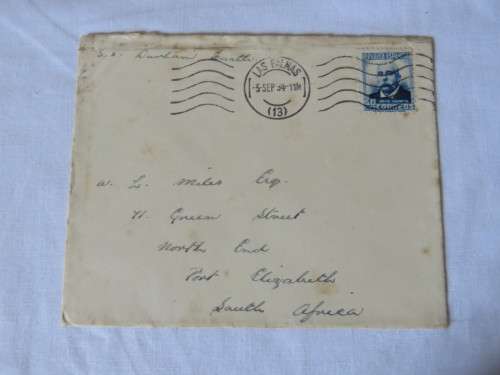 S.S. Durham Castle
LAS PALMAS
-5 SEP 34-11M
(13)
CORREOS
W. L. Miles Esq.
11 Green Street
North End
Port Elizabeth
South Africa